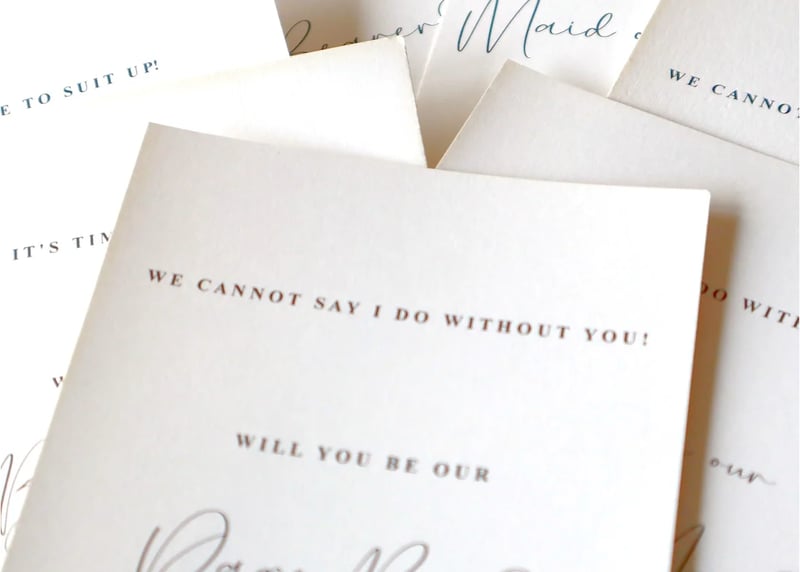 Maid
E TO SUIT UP!
WE CANNOT
IT'S TIM
WE CANNOT SAY I DO WITHOUT YOU!
DO WITH
WILL YOU BE OUR
our